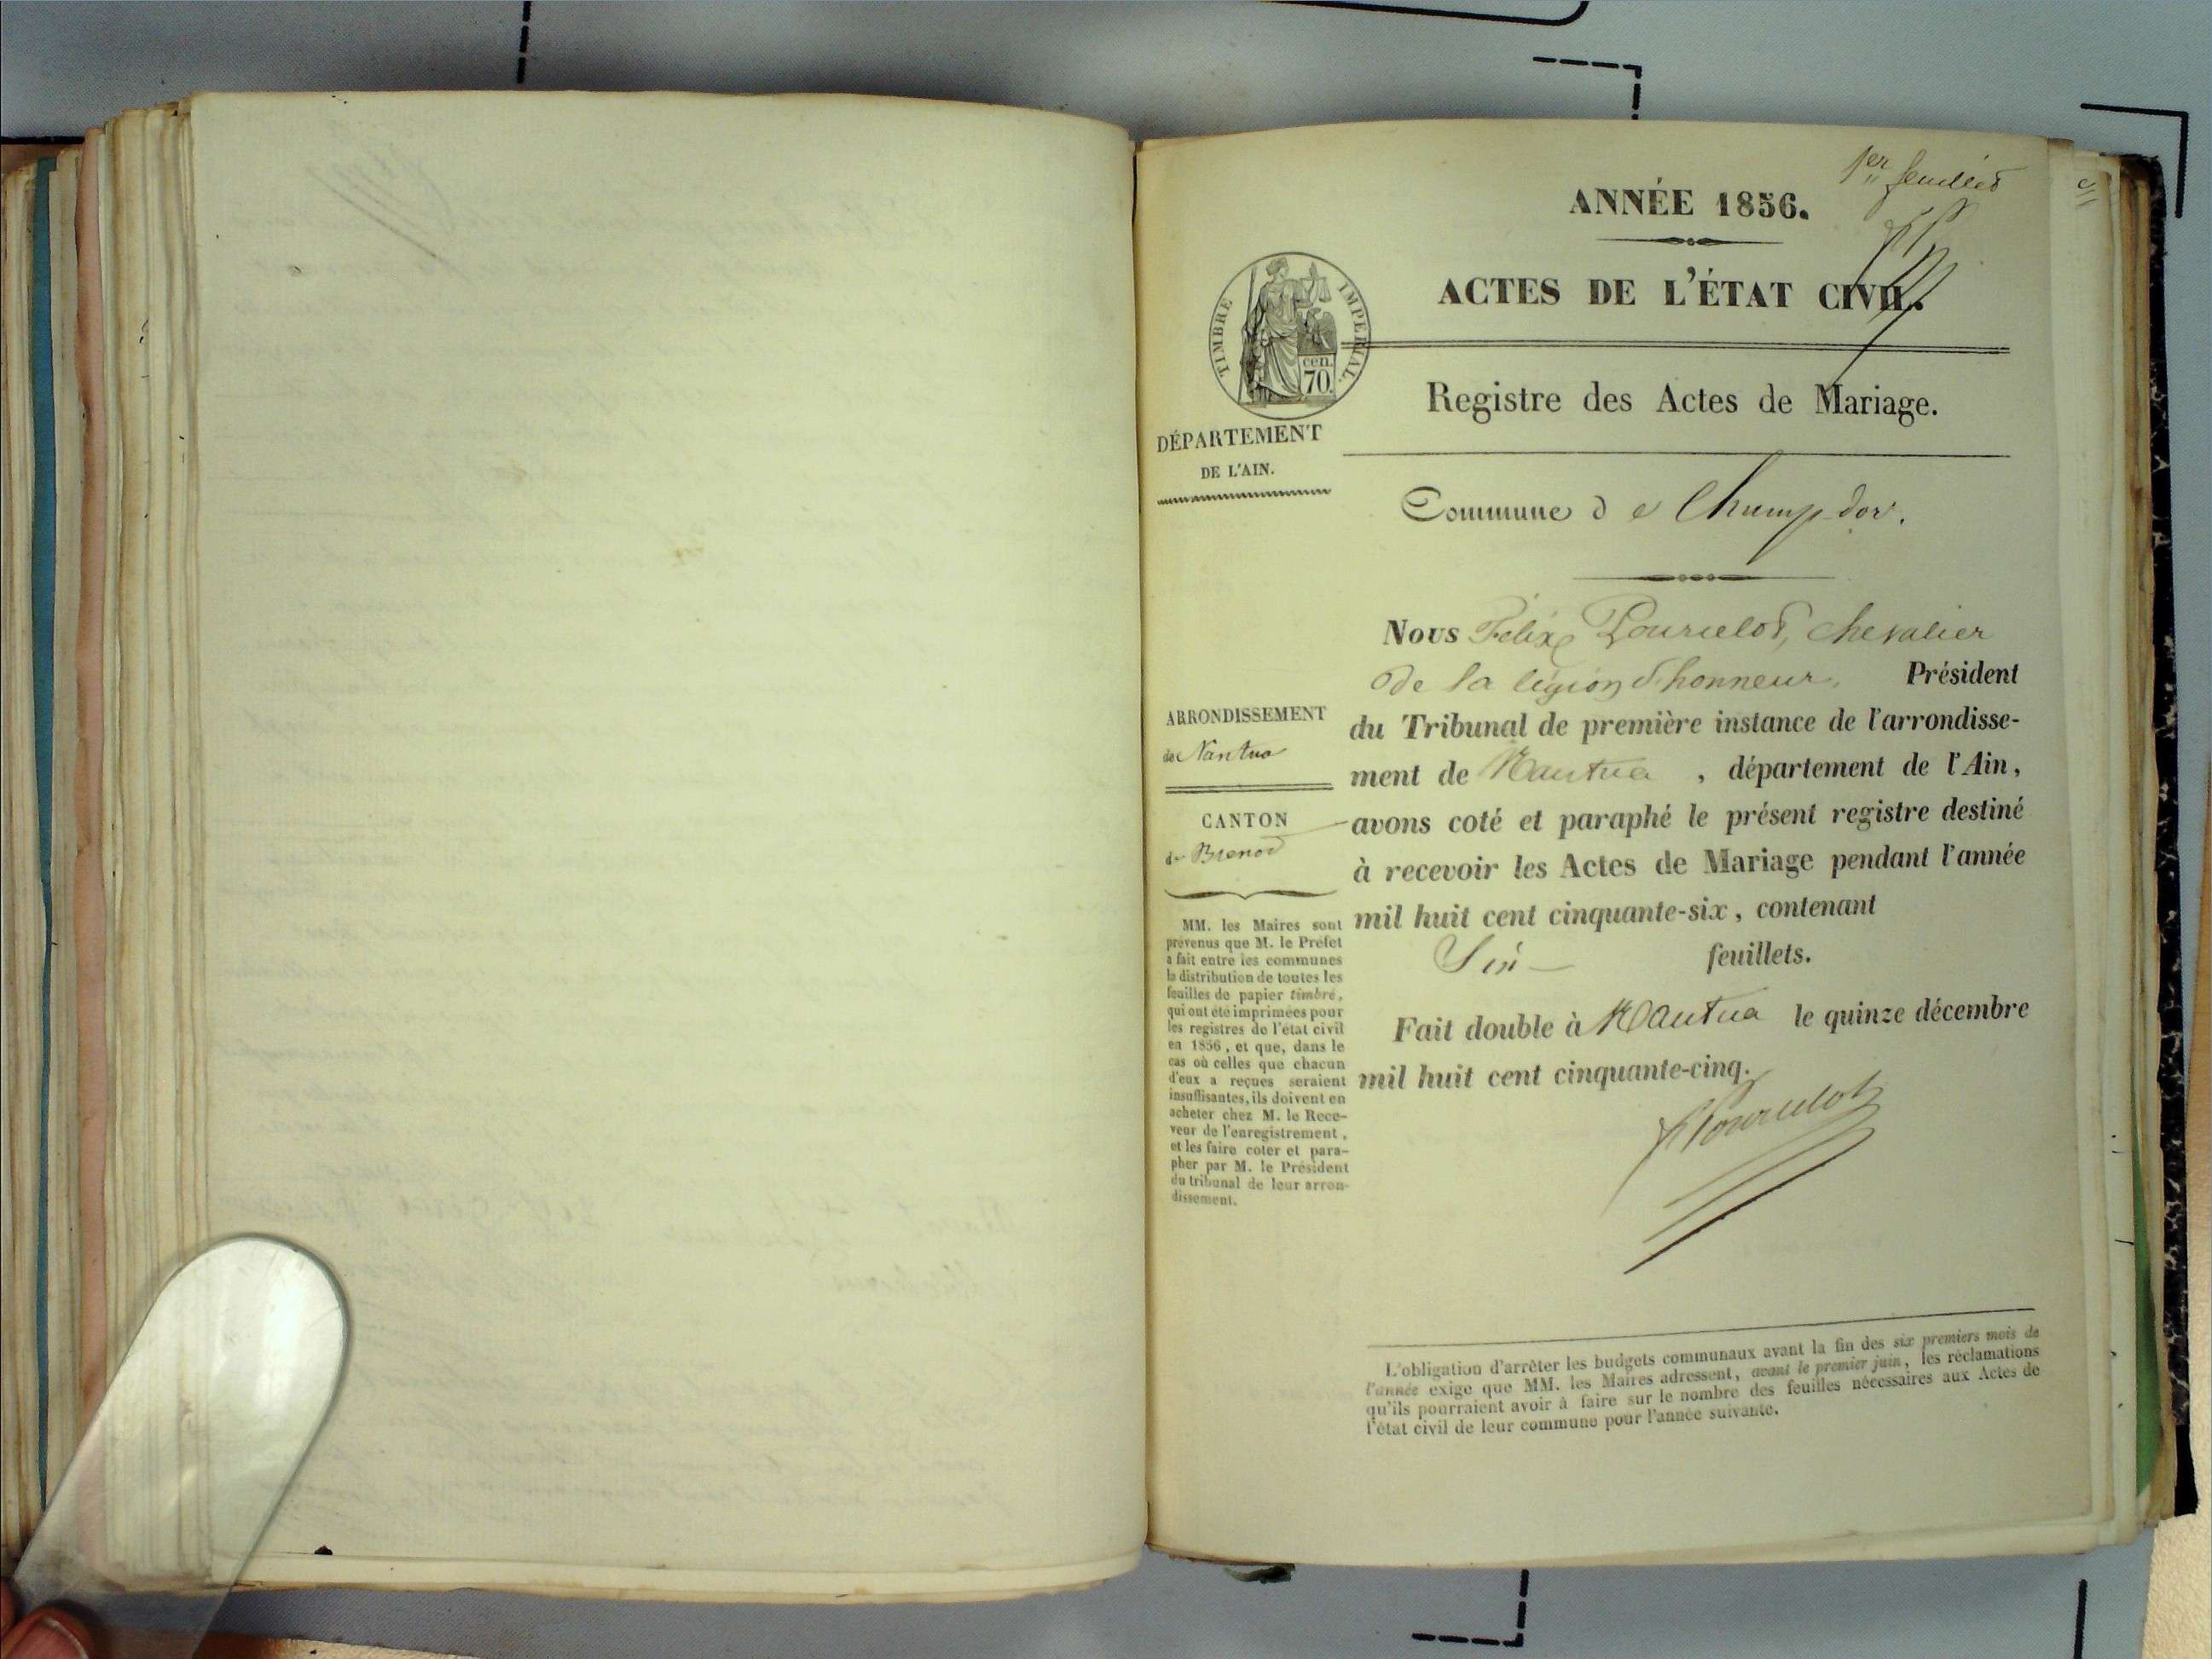 1er feuillet
ANNÉE 1856.
ACTES DE L'ÉTAT CIVIL.
TIMBRE IMPERIAL.
cen.
70
Registre des Actes de Mariage.
DÉPARTEMENT
DE L'AIN.
Commune de Champdor.
Nous Félix Pourcelot, chevalier
de la légion d'honneur, Président
du Tribunal de première instance de l'arrondisse-
ment de Nantua, département de l'Ain,
avons coté et paraphé le présent registre destiné
à recevoir les Actes de Mariage pendant l'année
mil huit cent cinquante-six, contenant
Six feuillets.
Fait double à Nantua le quinze décembre
mil huit cent cinquante-cinq.
Pourcelot
ARRONDISSEMENT
de Nantua
CANTON
de Brenod
MM. les Maires sont
prévenus que M. le Préfet
a fait entre les communes
la distribution de toutes les
feuilles de papier timbré,
qui ont été imprimées pour
les registres de l'état civil
en 1856, et que, dans le
cas où celles que chacun
d'eux a reçues seraient
insuffisantes, ils doivent en
acheter chez M. le Rece-
veur de l'enregistrement,
et les faire coter et para-
pher par M. le Président
du tribunal de leur arron-
dissement.
L'obligation d'arrêter les budgets communaux avant la fin des six premiers mois de
l'année exige que MM. les Maires adressent, avant le premier juin, les réclamations
qu'ils pourraient avoir à faire sur le nombre des feuilles nécessaires aux Actes de
l'état civil de leur commune pour l'année suivante.